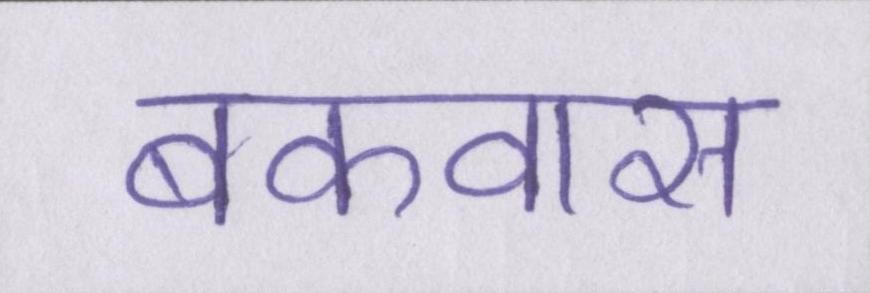 बकवास